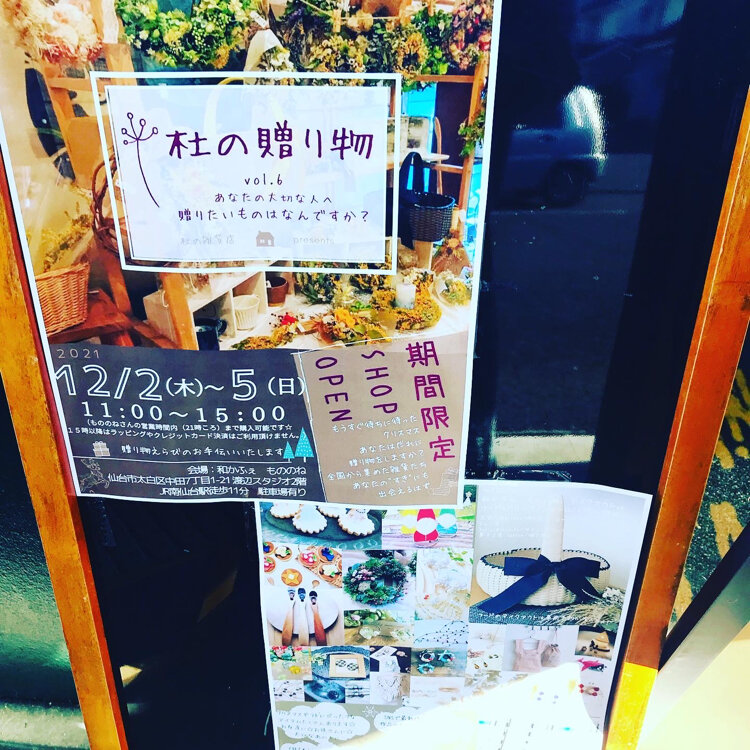 杜の贈り物
vol.6
あなたの大切な人へ
贈りたいものはなんですか？
杜の雑貨店 presents
2021
12/2(木)〜5(日)
11:00〜15:00
(もののねさんの営業時間内（21時ころ）まで購入可能です☆
15時以降はラッピングやクレジットカード決済はご利用頂けません。
贈り物えらびのお手伝いいたします
会場：和かふぇ もののね
仙台市太白区中田7丁目1-21 渡辺スタジオ2階
JR南仙台駅徒歩11分 駐車場有り
期間限定
SHOP
OPEN
もうすぐ待ちに待った
クリスマス
あなたはだれに
贈り物をしますか？
全国から集めた雑貨たち
あなたの"すき"にも
出会えるはず